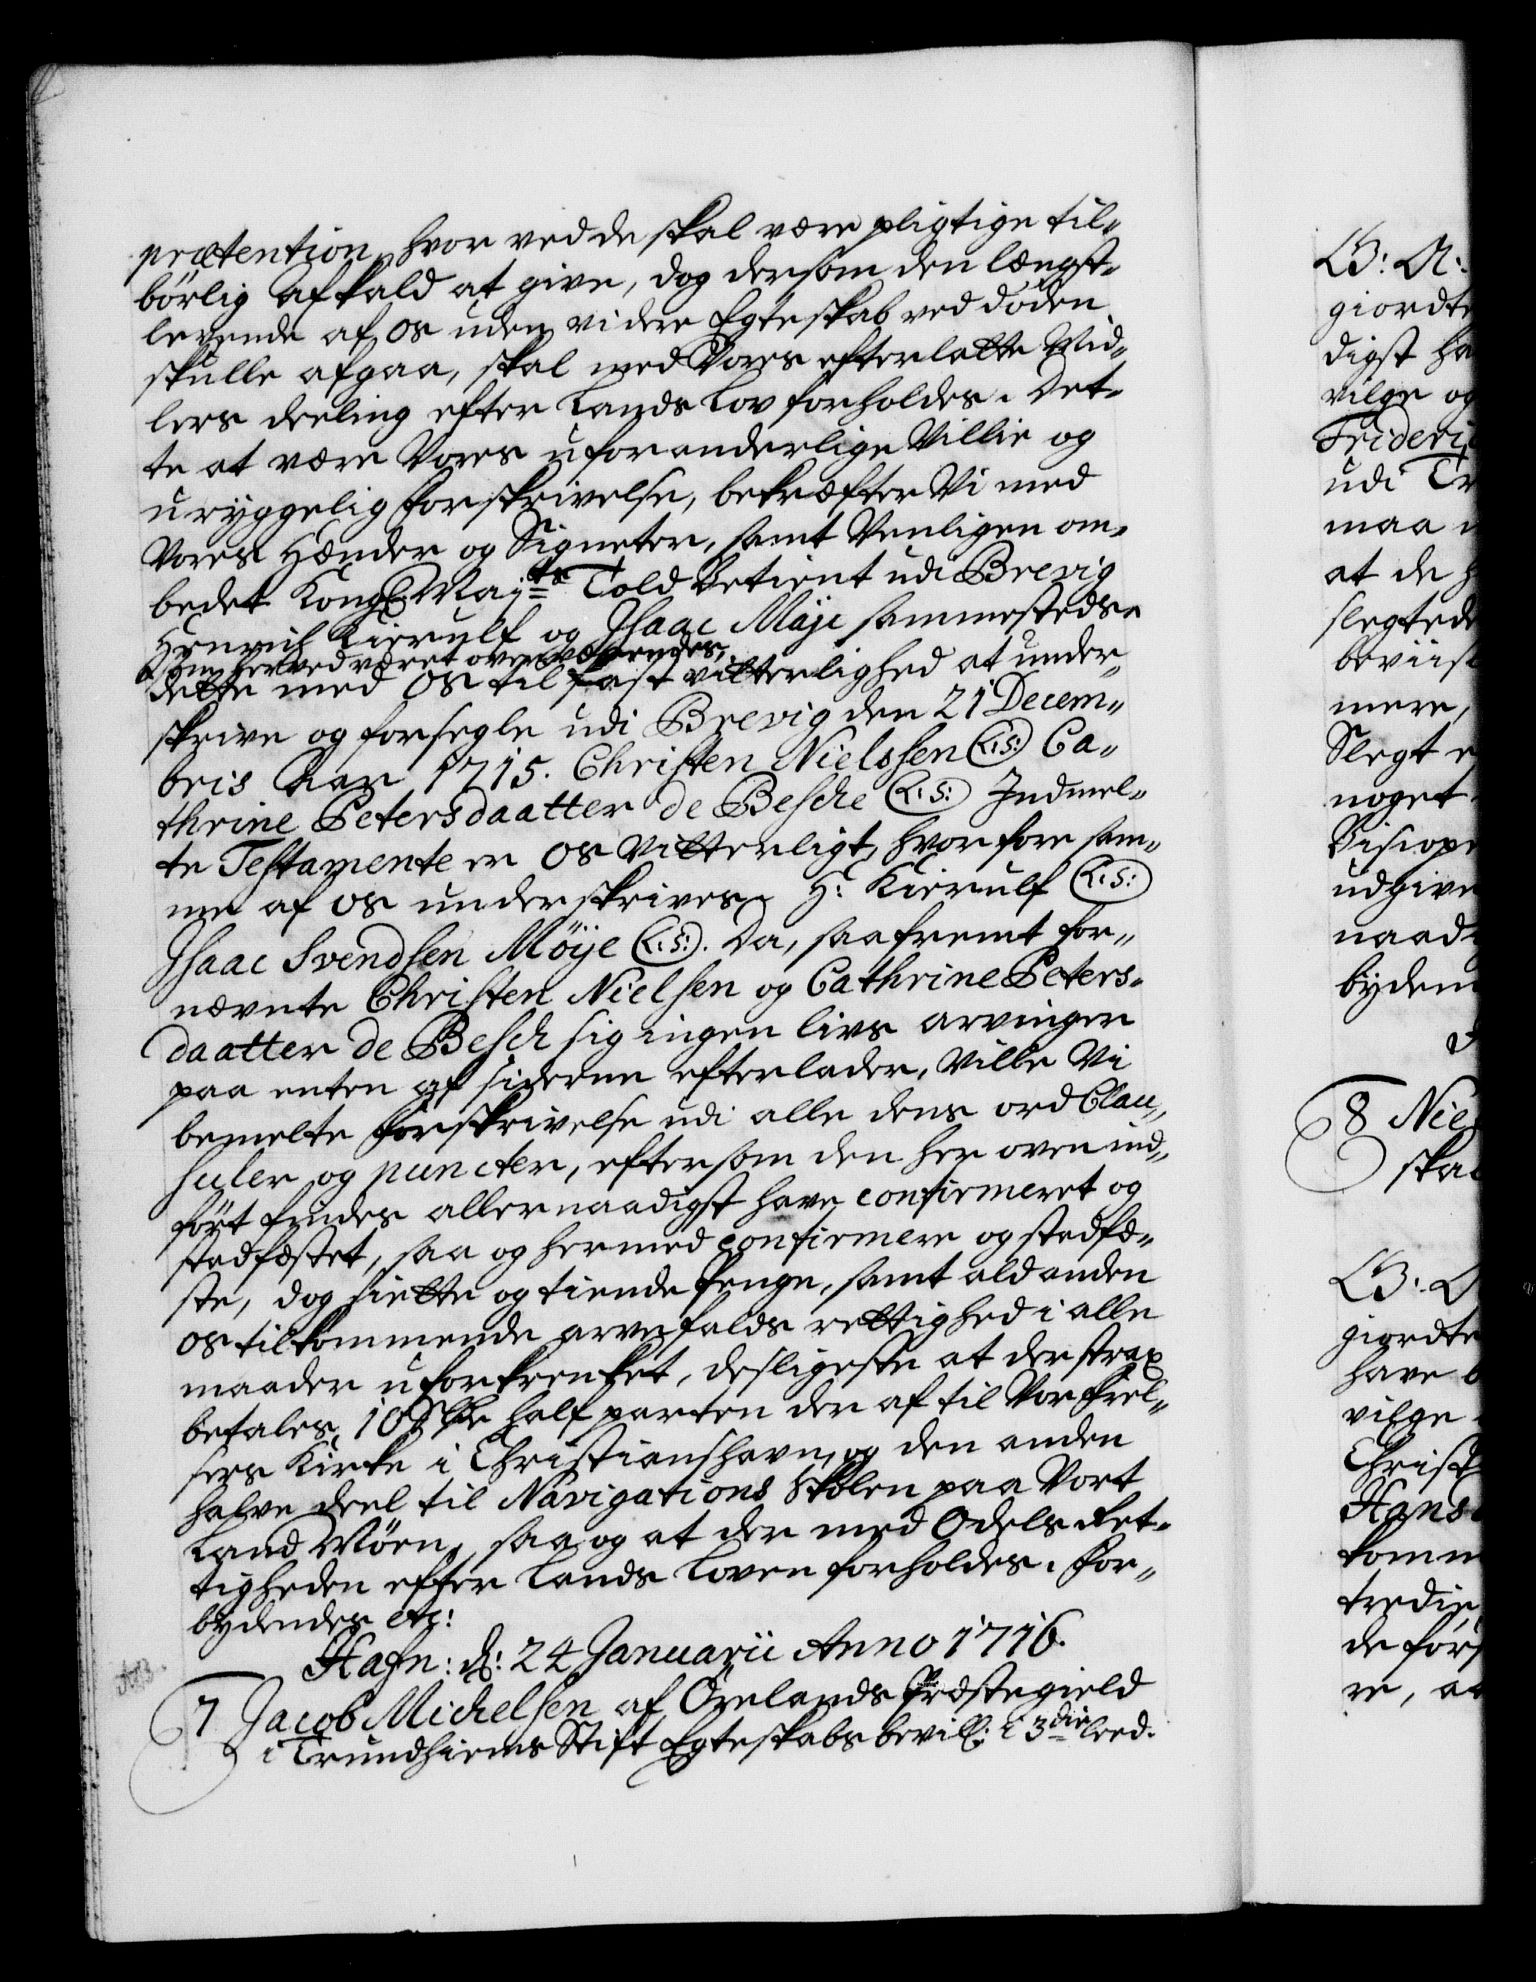 prætention, hvor ved de skal være pligtige til-
børlig afkald at give, dog dersom den længst-
levende af os uden videre Egteskab ved døden
skulle afgaa, skal med Vores efterlatte Mid-
lers deeling efter Lands Lov forholdes. Det-
te at være Vores uforanderlige Villie og
uryggelig forskrivelse, bekræfter Vi med
Vores Hænder og Signeter, samt Venligen om-
bedet Kongl. Maj:ts Told Betient udi Brevig
Henrich Kierulf og Isaac Møje sammesteds
som herved været overværendes,
dette med os til fast vitterlighed at under-
skrive og forsegle udi Brevig den 21 Decem-
bris Aar 1715. Christen Nielssen (L:S:) Ca-
thrine Petersdaatter de Besche (L:S:) Indmel-
te Testamente er os vitterligt, hvorfore sam-
me af os underskrives. H: Kierulf (L:S:)
Isaac Svendsen Møije (L:S:). Da, saafremt for-
nævnte Christen Nielsen og Cathrine Peters-
daatter de Besch sig ingen livs arvinger
paa enten af siderne efterlader, Ville Vi
bemelte forskrivelse udi alle dens ord Clau-
suler og puncter, eftersom den her oven ind-
ført findes allernaadigst have confirmeret og
stadfæstet, saa og hermed confirmere og stadfæ-
ste, dog siette og tiende Penge, samt ald anden
os tilkommende arvefalds rettighed i alle
maader uforkrenket, desligeste at der strax
betales, 10 Rdr halfparten der af til Vor Frel-
sers Kirke i Christianshavn, og den anden
halve deel til Navigations Skolen paa Vort
Land Møen, saa og at der med Odels Ret-
tigheden efter Lands Loven forholdes. For-
bydendes etc:
Hafn: d: 24 Januarii Anno 1716.
7 Jacob Michelsen af Ørelands Præstegield
i Trundhiems Stift Egteskabs bevill: i 3die leed.
B: A:
giordte
digst ha
vilge og
Frideri
udi Tr
maa
at de h
slegtede
beviist
mere,
Slegt e
noget
Disiope
udgive
naad
byden
8 Niel
ska
giordte
have b
vilge
Christ
Hans
komm
tredie
de førs
re, a